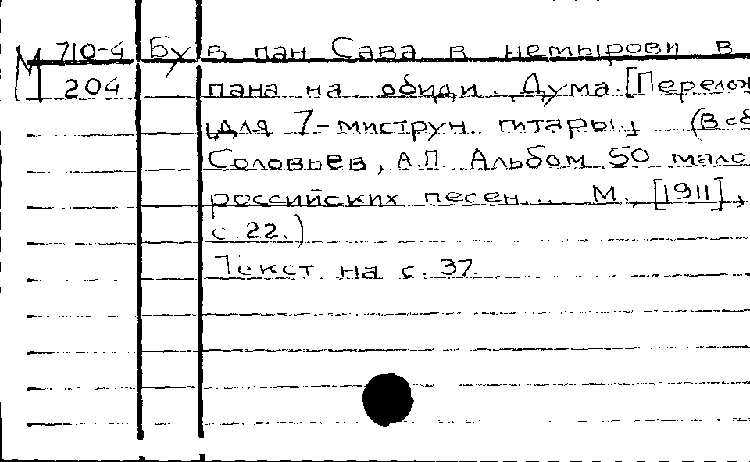 М 710-4 Бу в пан Сава в немырови в
204 пана на обиди. Дума. [Перелож
для 7-миструн. гитары] (В сб
Соловьев, А.П. Альбом 50 мало
российских песен... М., [1911],
с. 22.)
Текст на с. 37